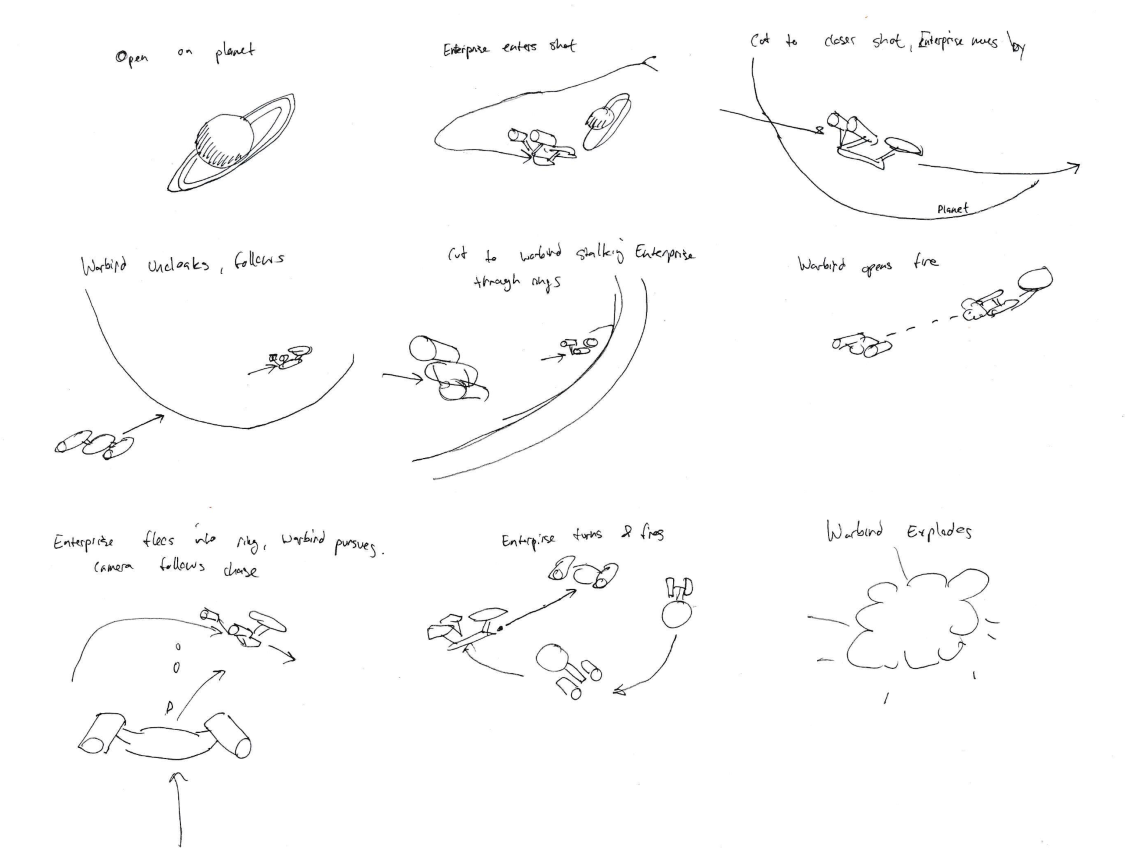 Open on planet
Enterprise enters shot
Cut to closer shot, Enterprise moves by
Planet
Warbird uncloaks, follows
Cut to warbird stalking Enterprise
through rings
Warbird opens fire
Enterprise flees into ring, warbird pursues.
Camera follows chase
Enterpirse turns & fires
Warbird Explodes